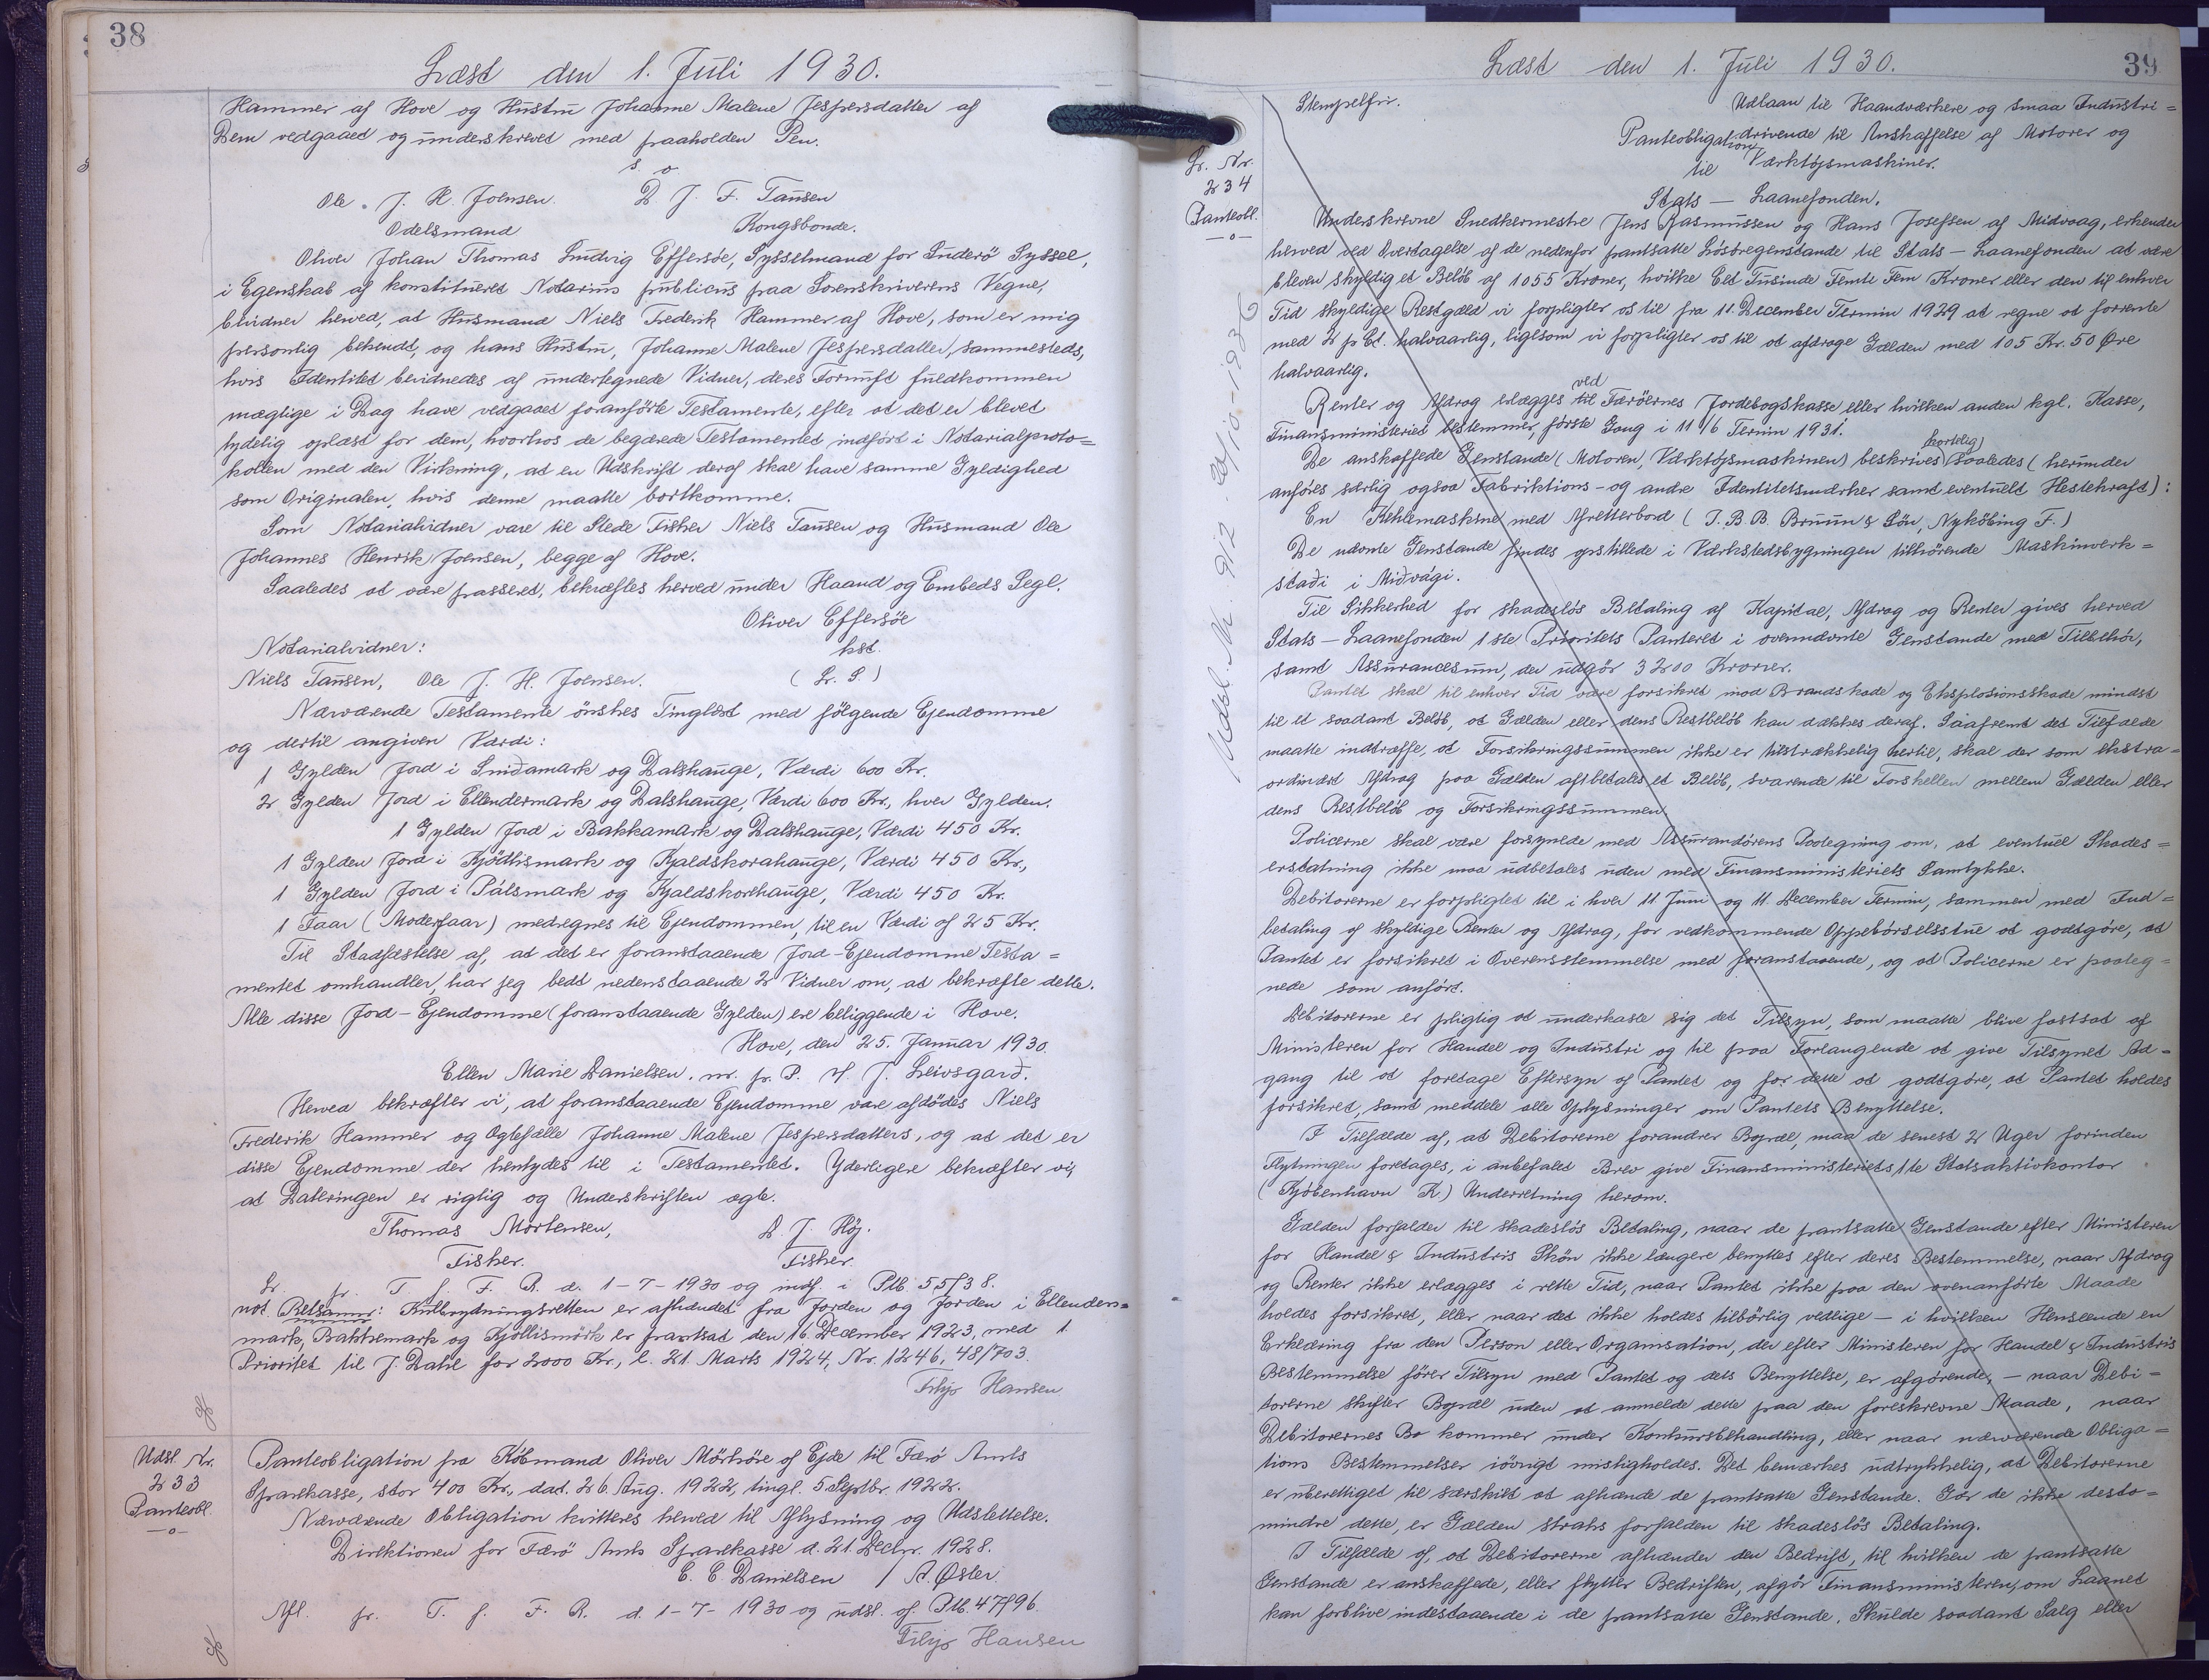 38
Læst den 1. Juli 1930.
Hammer af Hove og Hustru Johanne Malene Jespersdatter af
Dem vedgaaet og underskrevet med paaholden Pen.
s. o
Ole J. H. Joensen. D. J. F. Tausen
Odelsmand Kongsbonde.
Oliver Johan Thomas Ludvig Effersöe, Sysselmand for Suderö Syssel,
i Egenskab af konstitueret Notarius publicus paa Sorenskriverens Vegne,
bevidner herved, at Husmand Niels Frederik Hammer af Hove, som er mig
personlig bekendt, og hans Hustru, Johanne Malene Jespersdatter, sammesteds,
hvis Identitet bevidnedes af undertegnede Vidner, deres Fornuft fuldkommen
mægtige i Dag have vedgaaet foranførte Testamente, efter at det er blevet
tydelig oplæst for dem, hvorhos de begærede Testamentet indført i Notarialproto=
kollen med den Virkning, at en Udskrift deraf skal have samme Gyldighed
som Originalen, hvis denne maatte bortkomme.
Som Notarialvidner vare til Stede Fisker Niels Tausen og Husmand Ole
Johannes Henrik Joensen, begge af Hove.
Saaledes at være passeret, bekræftes herved under Haand og Embeds Segl.
Oliver Effersöe
Notarialvidner: kst.
Niels Tausen, Ole J. H. Joensen. ( L. S. )
Nærværende Testamente önskes Tinglæst med fölgende Ejendomme
og dertil angiven Værdi:
1 Gylden Jord i Smiðamark og Dalshauge, Værdi 600 Kr.
2 Gylden Jord i Ellendermark og Dalshauge, Værdi 600 Kr., hver Gylden.
1 Gylden Jord i Bakkamark og Dalshauge, Værdi 450 Kr.
1 Gylden Jord i Kjödlismark og Kjaldskorahauge, Værdi 450 Kr.,
1 Gylden Jord i Pálsmark og Kjaldskorehauge, Værdi 450 Kr.
1 Faar (Moderfaar) medregnes til Ejendommen, til en Værdi af 25 Kr.
Til Stadfæstelse af, at det er foranstaaende Jord-Ejendomme Testa=
mentet omhandler, har jeg bedt nedenstaaende 2 Vidner om, at bekræfte dette.
Alle disse Jord-Ejendomme (foranstaaende Gylden) ere beliggende i Hove.
Hove, den 25. Januar 1930.
Ellen Marie Danielsen. m. p. P. H. J. Leivsgarð.
Herved bekræfter vi, at foranstaaende Ejendomme vare afdödes Niels
Frederik Hammer og Ægtefælle Johanne Malene Jespersdatters, og at det er
disse Ejendomme der hentydes til i Testamentet. Yderligere bekræfter vi,
at Dateringen er rigtig og Underskriften ægte.
Thomas Mortensen, D. J. Höj.
Fisker. Fisker.
L. pr. T. f. F. R. d. 1-7-1930 og indf. i Ptb. 55/38.
not. Retsanm: Kulbrydningsretten er afhændet fra Jorden og Jorden i Ellenders=
mark, Bakkemark og Kjöllismörk er pantsat den 16. December 1923, med 1.
Prioritet til J. Dahl for 2000 Kr., l. 21. Marts 1924, Nr. 1246, 48/703.
Filip Hansen
Udsl. Nr.
233
Panteobl.
Panteobligation fra Købmand Oliver Mörköre af Ejde til Færø Amts
Sparekasse, stor 400 Kr., dat. 26. Aug. 1922, tingl. 5. Septbr. 1922.
Nærværende Obligation kvitteres herved til Aflysning og Udslettelse.
Direktionen for Færø Amts Sparekasse d. 21. Decbr. 1928.
C. C. Danielsen / A. Øster.
Afl. pr. T. f. F. R. d. 1-7-1930 og udsl. af Ptb. 47/96.
Filip Hansen
39
Læst den 1. Juli 1930.
Stempelfri.
L. Nr.
234
Panteobl.
Udsl. Nr. 9/2 - 20/10-1936
Udlaan til Haandværkere og smaa Industri=
Panteobligation drivende til Anskaffelse af Motorer og
til Værktøjsmaskiner.
Stats - Laanefonden.
Underskrevne Snedkermestre Jens Rasmussen og Hans Josefsen af Midvaag, erkender
herved ved Overtagelse af de nedenfor pantsatte Lösöregenstande til Stats-Laanefonden at være
bleven skyldig et Beløb af 1055 Kroner, hvilke Et Tusinde Femti Fem Kroner eller den til enhver
Tid skyldige Restgæld vi forpligter os til fra 11. December Termin 1929 at regne at forrente
med 2 p Ct. halvaarlig, ligesom vi forpligter os til at afdrage Gælden med 105 Kr. 50 Øre
halvaarlig.
Renter og Afdrag erlægges til ved Færöernes Jordebogskasse eller hvilken anden kgl. Kasse,
Finansministeriet bestemmer, første Gang i 11/6 Termin 1931.
De anskaffede Genstande (Motoren, Værktøjsmaskinen) beskrives kortelig saaledes (herunder
anføres særlig ogsaa Fabriktions- og andre Identitetsmærker samt eventuelt Hestekraft):
En Kehlemaskine med Afretterbord (J. B. B. Bruun & Sön, Nyköbing F.)
De nævnte Genstande findes opstillede i Værkstedsbygningen tilhørende Maskinverk=
staði i Miðvági.
Til Sikkerhed for skadeslös Betaling af Kapital, Afdrag og Renter gives herved
Stats-Laanefonden 1ste Prioritets Panteret i ovennævnte Genstande med Tilbehör,
samt Assurancesum, der udgör 3200 Kroner.
Pantet skal til enhver Tid være forsikret mod Brandskade og Eksplosionsskade mindst
til et saadant Beløb, at Gælden eller dens Restbeløb kan dækkes deraf. Saafremt det Tilfælde
maatte indtræffe, at Forsikringssummen ikke er tilstrækkelig hertil, skal der som ekstra=
ordinært Afdrag paa Gælden afbetales et Beløb, svarende til Forskellen mellem Gælden eller
dens Restbeløb og Forsikringssummen.
Policerne skal være forsynede med Assurandørens Paategning om, at eventuel Skades=
erstatning ikke maa udbetales uden med Finansministeriets Samtykke.
Debitorerne er forpligtet til i hver 11. Juni og 11. December Termin, sammen med Ind=
betaling af skyldige Renter og Afdrag, for vedkommende Oppebörselsstue at godtgöre, at
Pantet er forsikret i Overensstemmelse med foranstaaende, og at Policerne er paateg=
nede som anført.
Debitorerne er pligtig at underkaste sig det Tilsyn, som maatte blive fastsat af
Ministeren for Handel og Industri og til paa Forlangende at give Tilsynet Ad=
gang til at foretage Eftersyn af Pantet og for dette at godtgöre, at Pantet holdes
forsikret, samt meddele alle Oplysninger om Pantets Benyttelse.
I Tilfælde af, at Debitorerne forandrer Bopæl, maa de senest 2 Uger forinden
Flytningen foretages, i anbefalet Brev give Finansministeriets 1te Statsaktivkontor
(Kjöbenhavn K.) Underretning herom.
Gælden forfalder til skadeslös Betaling, naar de pantsatte Genstande efter Ministeren
for Handel & Industris Skön ikke længere benyttes efter deres Bestemmelse, naar Afdrag
og Renter ikke erlægges i rette Tid, naar Pantet ikke paa den ovenanførte Maade
holdes forsikret, eller naar det ikke holdes tilbörlig vedlige - i hvilken Henseende en
Erklæring fra den Person eller Organisation, der efter Ministeren for Handel & Industris
Bestemmelse förer Tilsyn med Pantet og dets Benyttelse, er afgörende, - naar Debi=
torerne skifter Bopæl uden at anmelde dette paa den foreskrevne Maade, naar
Debitorernes Bo kommer under Konkursbehandling, eller naar nærværende Obliga=
tions Bestemmelser iövrigt misligholdes. Det bemærkes udtrykkelig, at Debitorerne
er uberettiget til særskilt at afhænde de pantsatte Genstande. Gör de ikke desto=
mindre dette, er Gælden straks forfalden til skadeslös Betaling.
I Tilfælde af, at Debitorerne afhænder den Bedrift, til hvilken de pantsatte
Genstande er anskaffede, eller flytter Bedriften, afgör Finansministeren, om Laanet
kan forblive indestaaende i de pantsatte Genstande. Skulde saadant Salg eller